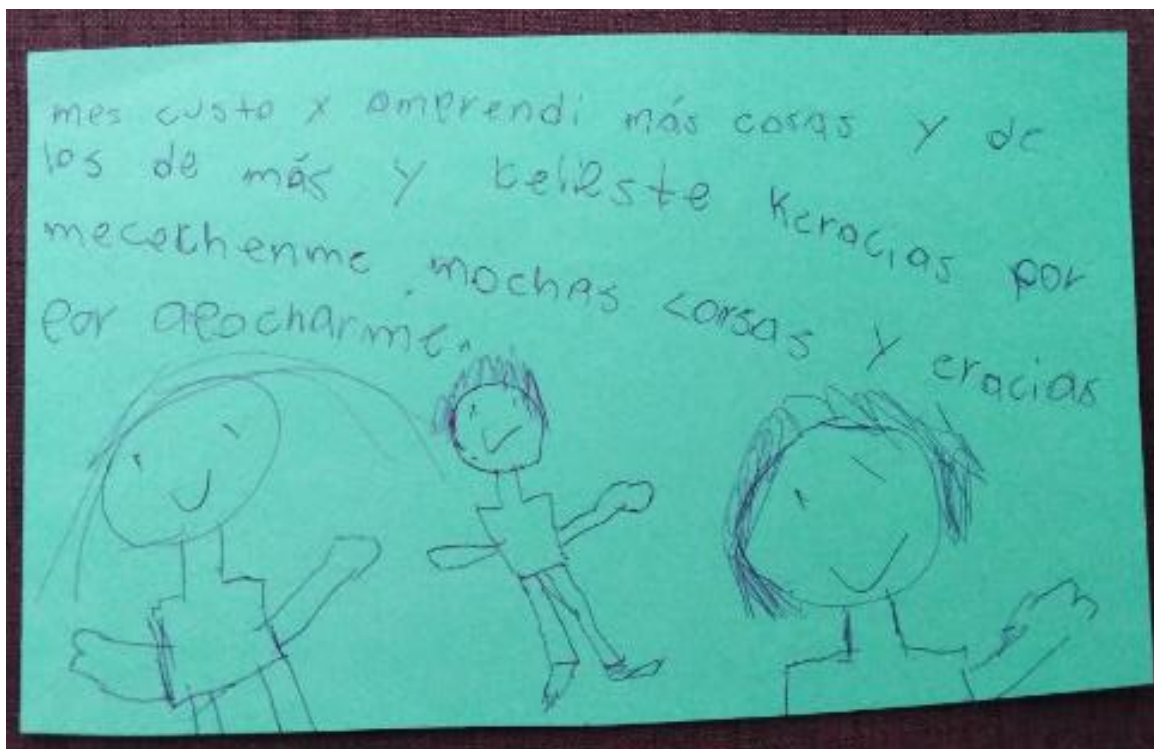 mes custo x omprendi más cosas y de
los de más y celeste Keracias por
mecechenme mochas corsas y eracias
por apocharme.